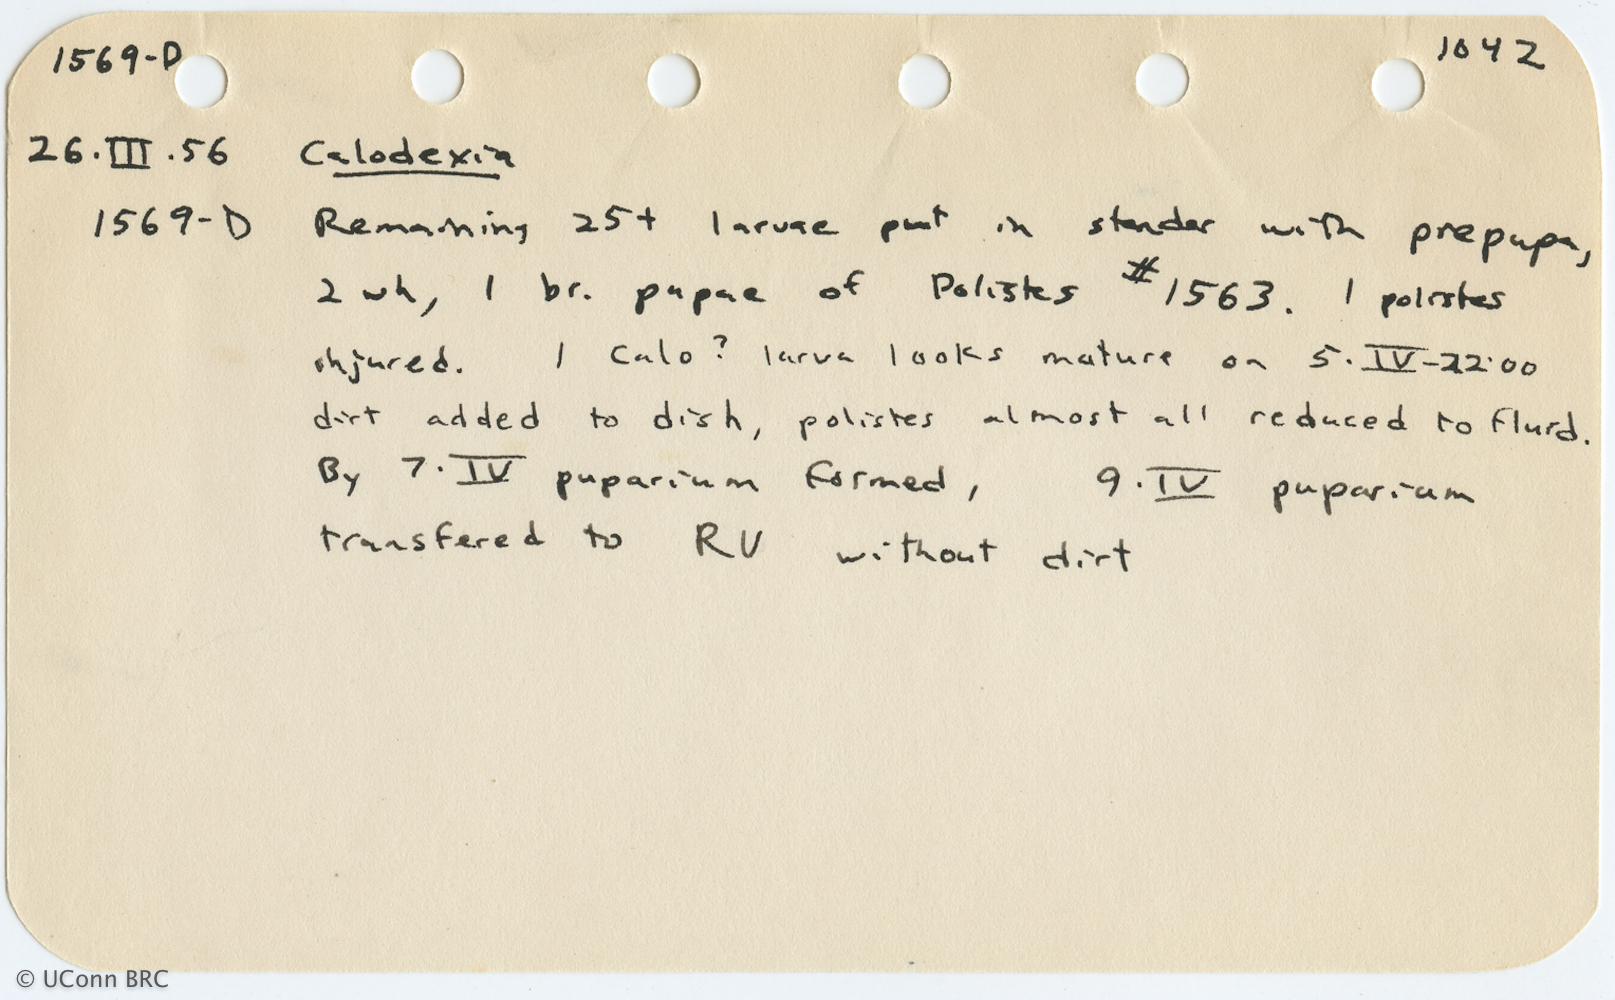 1569-D 1042
26.III.56 Calodexia
1569-D Remaining 25+ larvae put in stender with prepupa,
2 wh, 1 br. pupae of Polistes #1563. 1 polistes
injured. 1 Calo? larva looks mature on 5.IV-22:00
dirt added to dish, polistes almost all reduced to fluid.
By 7.IV puparium formed, 9.IV puparium
transfered to RV without dirt
© UConn BRC